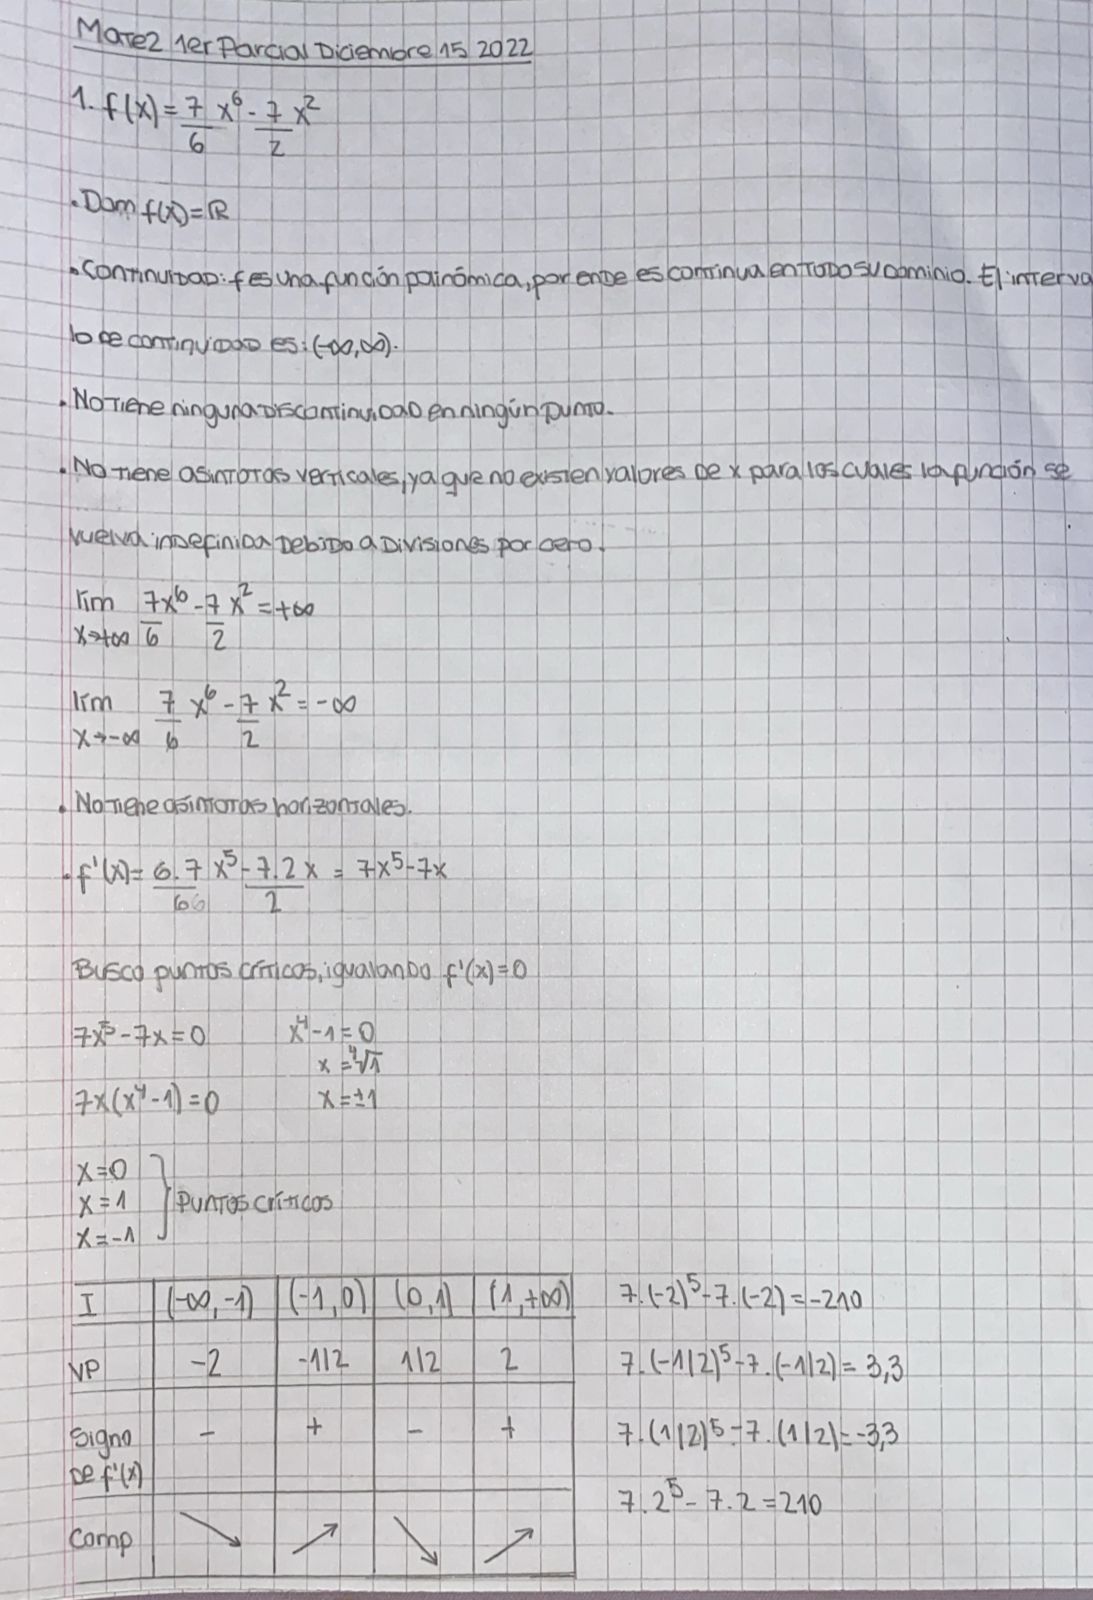 Mate2 1er Parcial Diciembre 15 2022
1. f(x) = 7/6 x^6 - 7/2 x^2
• Dom f(x) = ℝ
• Continuidad: f es una función polinómica, por ende es continua en todo su dominio. El interva
lo de continuidad es: (-∞, ∞).
• No tiene ninguna discontinuidad en ningún punto.
• No tiene asintotas verticales, ya que no existen valores de x para los cuales la función se
vuelva indefinida debido a divisiones por cero.
lim x→+∞ 7x^6/6 - 7/2 x^2 = +∞
lim x→-∞ 7/6 x^6 - 7/2 x^2 = -∞
• No tiene asíntotas horizontales.
• f'(x) = 6.7/6 x^5 - 7.2/2 x = 7x^5 - 7x
Busco puntos críticos, igualando f'(x) = 0
7x^5 - 7x = 0 x^4 - 1 = 0
x = ⁴√1
7x(x^4 - 1) = 0 x = ±1
x = 0
x = 1 } Puntos críticos
x = -1
I (-∞, -1) (-1, 0) (0, 1) (1, +∞) 7.(-2)^5 - 7.(-2) = -210
VP -2 -1/2 1/2 2 7.(-1/2)^5 - 7.(-1/2) = 3,3
Signo - + - + 7.(1/2)^5 - 7.(1/2) = -3,3
de f'(x)
7.2^5 - 7.2 = 210
Comp ↘ ↗ ↘ ↗